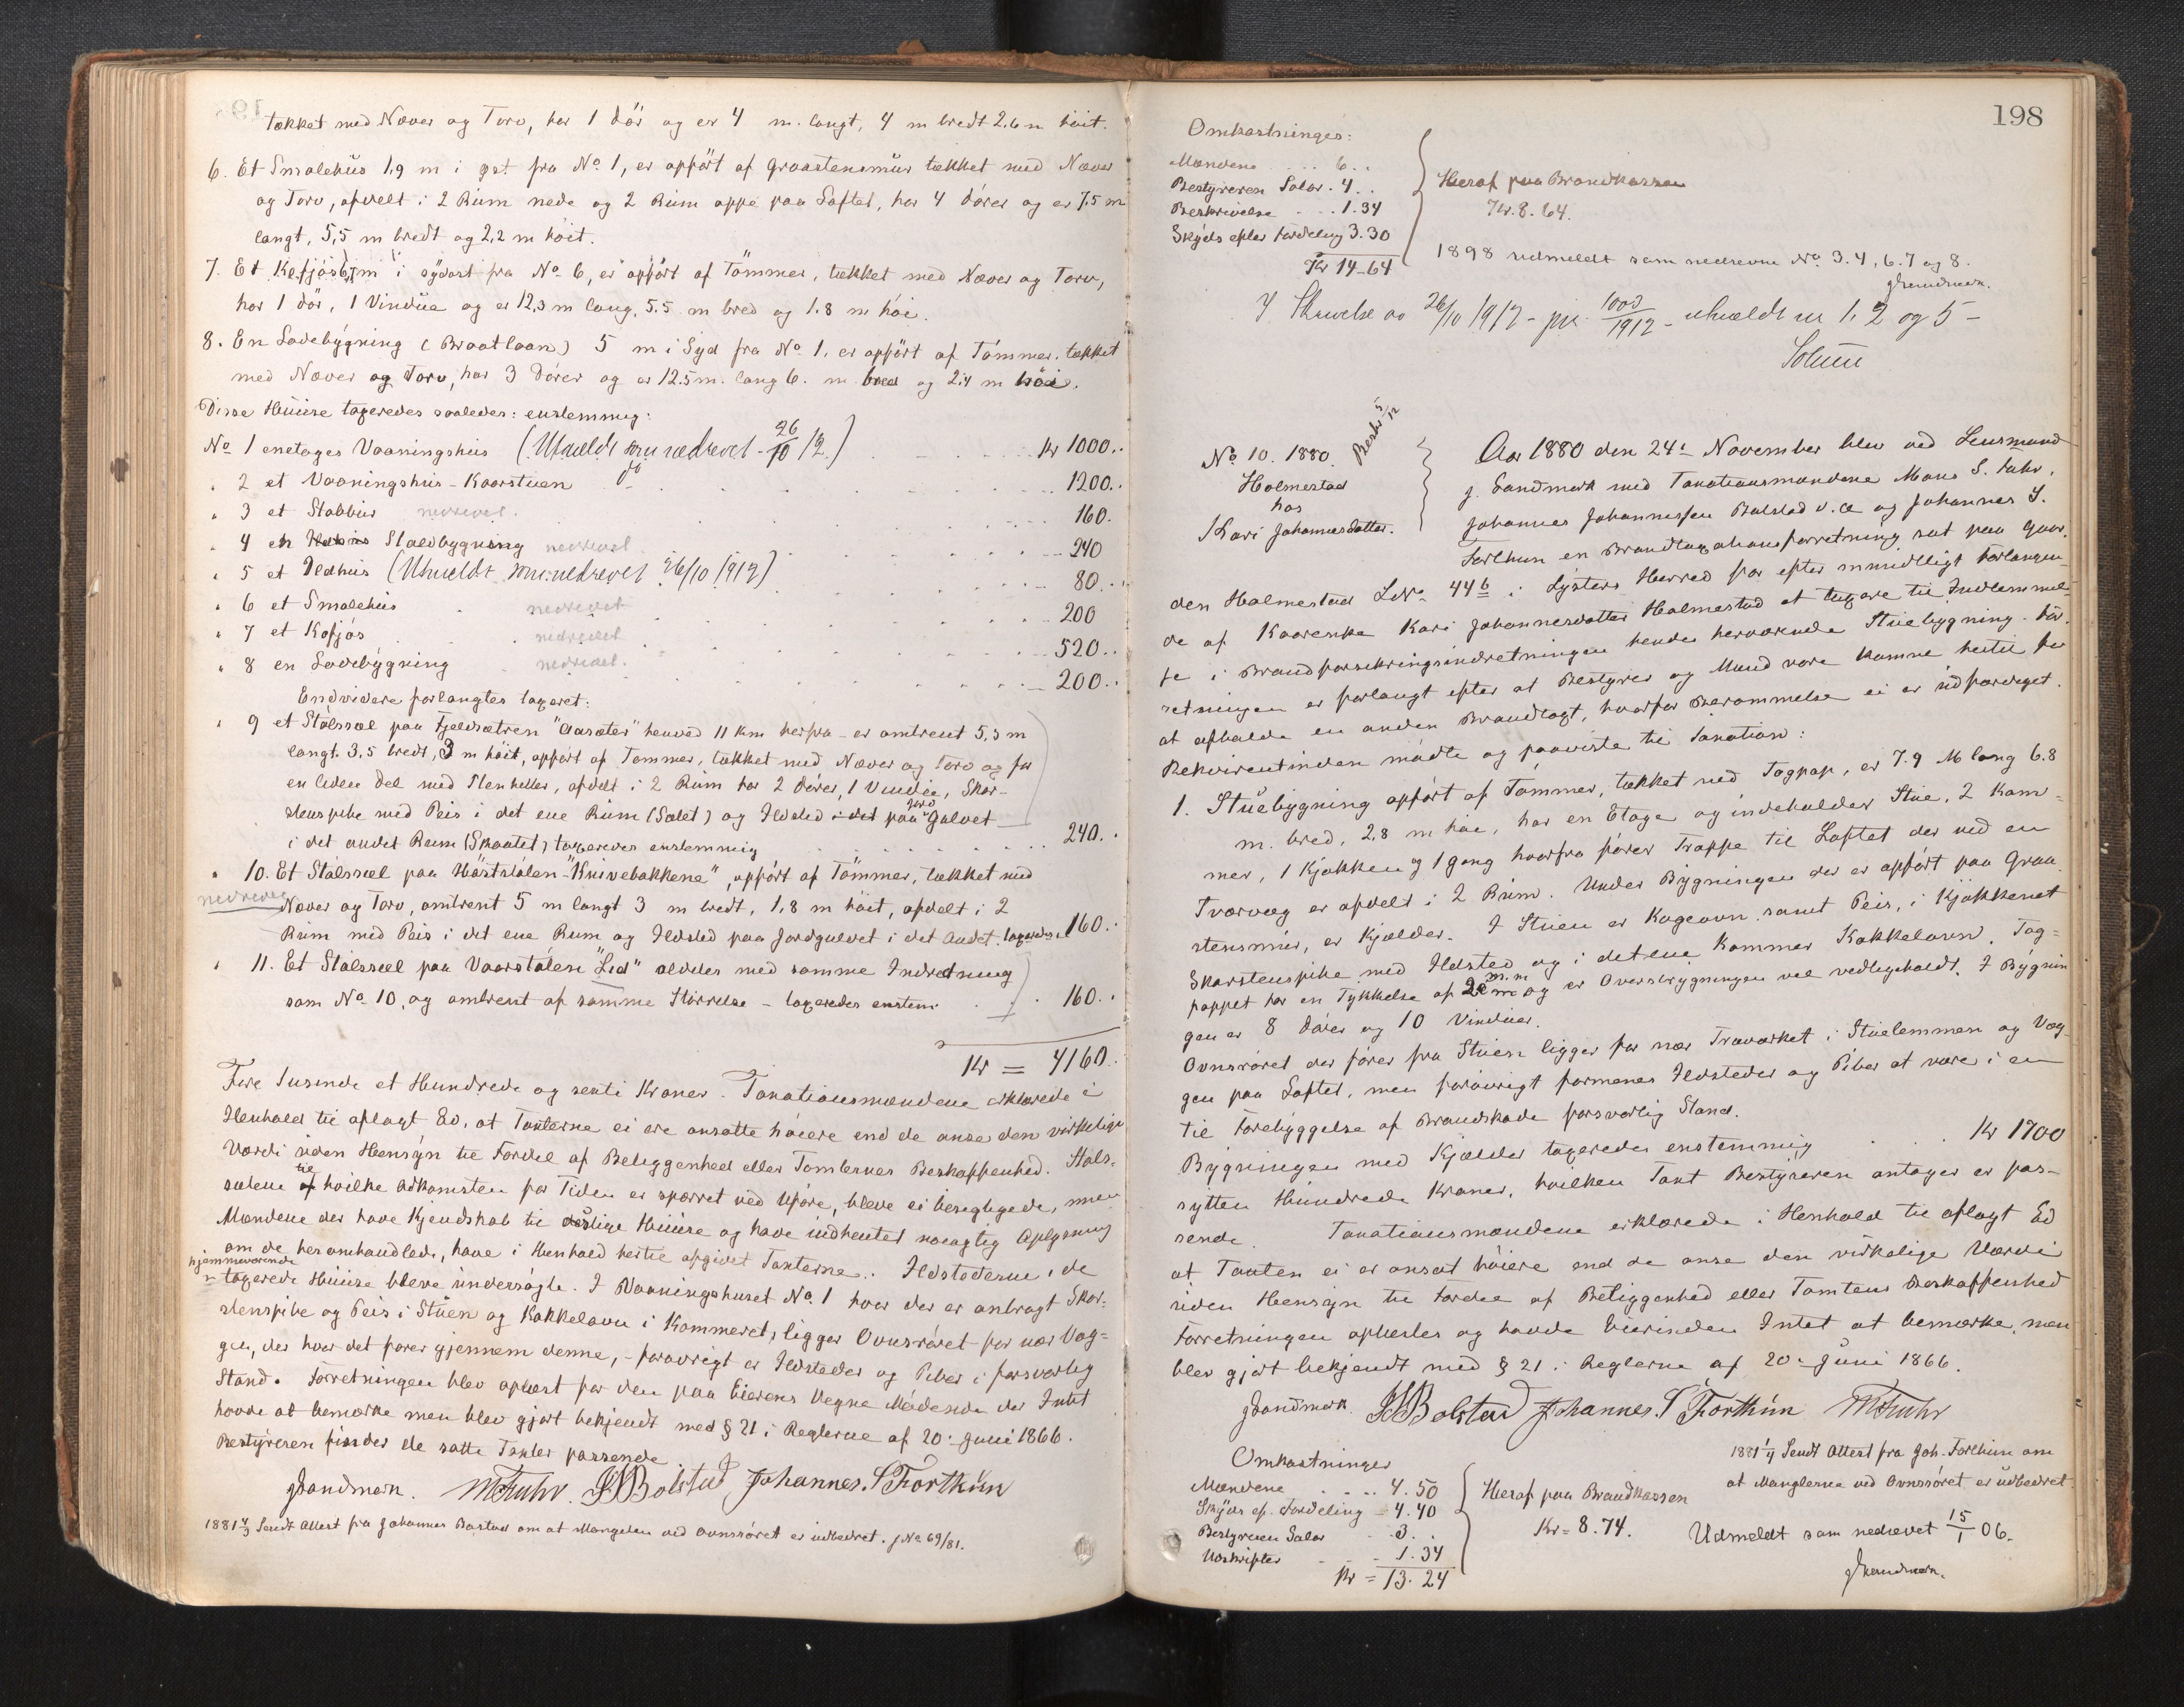 tækket med Næver og Torv, har 1 Dör og er 4 m. langt, 4 m bredt 2,6 m höit.
6. Et Smalehüs 1,9 m i öst fra No 1, er opfört af Graastensmür tækket med Næver
og Torv, afdelt i 2 Rüm nede og 2 Rüm oppe paa Loftet, har 4 Dörer og er 7.5 m
langt, 5,5 m bredt og 2,2 m höit.
7. Et Kofjös i sydost fra No 6, er opfört af Tömmer, tækket med Næver og Torv,
har 1 dör, 1 Vindüe og er 12,3 m lang, 5.5 m bred og 1.8 m höi.
8. En Lodebygning (Braatlaan) 5 m i Syd fra No 1, er opfört af Tömmer, tækket
med Næver og Torv, har 3 Dörer og er 12.5 m. lang 6. m bred og 2,4 m höi.
Disse Hüüse taxeredes saaledes: enstemmig:
No 1 enetages Vaaningshüs (Utmeldt som nedrevet 26/10 12.) Kr 1000..
" 2 et Vaaningshüs-Kaarstuen do 1200..
" 3 et Stabbür nedrevet. 160.
" 4 en Staldbygning nedrevet 240
" 5 et Ildhüs (Utmeldt som nedrevet 26/10 1912) 80..
" 6 et Smalehüs nedrevet 200
" 7 et Kofjös nedrevet 520..
" 8 en Lodebÿgning nedrevet. 200..
Endvidere forlangtes taxeret:
" 9 et Stölssæl paa Fjeldsætren "Aasæter" henved 11 km herfra - er omtrent 5,5 m
langt. 3,5 bredt, 3 m höit, opfört af Tömmer, tækket med Næver og Torv og for
en liden Del med Stenheller, afdelt i 2 Rüm har 2 dörer, 1 Vindüe, Skor-
stenspibe med Peis i det ene Rüm (Sælet) og Ildsted i det paa Jord Gulvet
i det andet Rüm (Skaatet) taxeredes enstemmig 240.
" 10. Et Stölssæl paa Höststölen-"Knivebakkene", opfört af Tömmer, tækket med
nedrevet Næver og Torv, omtrent 5 m langt 3 m bredt, 1,8 m höit, afdelt i 2
Rüm med Peis i det ene Rum og Ildsted paa Jordgulvet i det Andet. taxeredes 160..
" 11. Et Stölssæl paa Vaarstölen "Lid" aldeles med samme Indretning
som No 10, og omtrent af samme Störrelse - taxeredes enstem 160..
Kr = 4160.
Fire Tusinde et Hundrede og sexti Kroner. Taxationsmændene erklærede i
Henhold til aflagt Ed, at Taxterne ei ere ansatte höiere end de anse den virkelige
Værdi uden Hensÿn til Fordel af Beliggenhed eller Tomternes Beskaffenhed. Stöls-
sælene til hvilke Adkomsten for Tiden er spærret ved Uföre, bleve ei besigtigede, men
Mændene der have Kjendskab til deslige Hüüse og have indhentet nöiagtig Oplysning
om de heromhandlede, have i Henhold hertil afgivet Taxterne. Ildstederne i de
hjemmeværende taxerede Hüüse bleve ündersögte. I Vaaningshuset No 1 hvor der er anbragt Skor-
stenspibe og Peis i Stüen og Kakkelovn i Kammeret, ligger Ovnsröret for nær Væg-
gen, der hvor det förer gjennem denne, - forövrigt er Ildsteder og Piber i forsvarlig
Stand. Forretningen blev oplæst for den paa Eierens Vegne Mödende der Intet
havde at bemærke men blev gjort bekjendt med § 21 i Reglerne af 20de Juni 1866.
Bestyreren finder de satte Taxter passende
JSandmark. MFuhr. JJBolstad Johannes. S Forthün
1881 Sendt Attest fra Johannes Bolstad om at Mangelen ved Ovnsröret er üdbedret. jNo 69/81.
198
Omkostninger:
Mændene 6..
Bestyreren Salær. 4..
Beskrivelse 1.34
Skÿds efter Fordeling 3.30
Kr 14-64
Heraf paa Brandkassen
Kr. 8.64.
1898 udmeldt som nedrevne No 3.4, 6.7 og 8.
JSandmark.
I Skrivelse av 26/10 1912 - pjr. 1003/1912 - utmeldt nr 1, 2 og 5 -
Solem
No 10. 1880.
Holmestad
hos
Kari Johannesdatter.
Aar 1880 den 24de November blev ved Lensmand
J. Sandmark med Taxationsmændene Mons S. Fuhr,
Johannes Johannessen Bolstad v. æ og Johannes S.
Forthun en Brandtaxationsforretning sat paa Gaar-
den Holmestad LNo 44b i Lÿsters Herred for efter mundtligt Forlangen-
de af Kaarenke Kari Johannesdatter Holmestad at taxere til Indlemmel-
se i Brandforsikringsindretningen hendes herværende Stüebygning. For-
retningen er forlangt efter at Bestyrer og Mænd vare komne hertil for
at afholde en anden Brandtaxt, hvorfor Berammelse ei er udfærdiget.
Rekvirentinden mödte og paaviste til Taxation:
1. Stüebygning opfört af Tömmer, tækket med Tagpap, er 7.9 M lang 6.8
m. bred, 2,8 m höi, har en Etage og indeholder Stüe, 2 Kam-
mer, 1 Kjökken og 1 Gang hvorfra förer Trappe til Loftet der ved en
Tværvæg er afdelt i 2 Rüm. Under Bÿgningen der er opfört paa Graa-
stensmür, er Kjælder. I Stüen er Kogeovn samt Peis, i Kjökkenet
Skorstenspibe med Ildsted og i det ene Kammer Kakkelovn. Tag-
pappet har en Tÿkkelse af 2 m.m og er Overbygningen vel vedligeholdt. I Bÿgnin
gen er 8 dörer og 10 Vindüer.
Ovnsröret der förer fra Stüen ligger for nær Træværket i Stüelemmen og Væg-
gen paa Loftet, men forövrigt formenes Ildsteder og Piber at være i en
til Forebyggelse af Brandskade forsvarlig Stand.
Bÿgningen med Kjælder taxeredes enstemmig Kr 1700
sÿtten Hündrede Kroner, hvilken Taxt Bestyreren antager er pas-
sende. Taxationsmændene erklærede i Henhold til aflagt Ed
at Taxten ei er ansat höiere end de anse den virkelige Værdi
üden Hensÿn til Fordel af Beliggenhed eller Tomtens Beskaffenhed
Forretningen oplæstes og havde Eierinden Intet at bemærke, men
blev gjort bekjendt med § 21 i Reglerne af 20de Juni 1866.
JSandmark JJBolstad Johannes. S Forthün MFuhr
Omkostninger
Mændene 4.50
Skÿds ef. Fordeling 4.40
Bestyreren Salær 3..
Udskrifter 1.34
Kr = 13.24
Heraf paa Brandkassen
Kr = 8.74.
1881 Sendt Attest fra Joh. Forthun om
at Manglerne ved Ovnsröret er üdbedret
Udmeldt som nedrevet 15/1 06.
JSandmark.